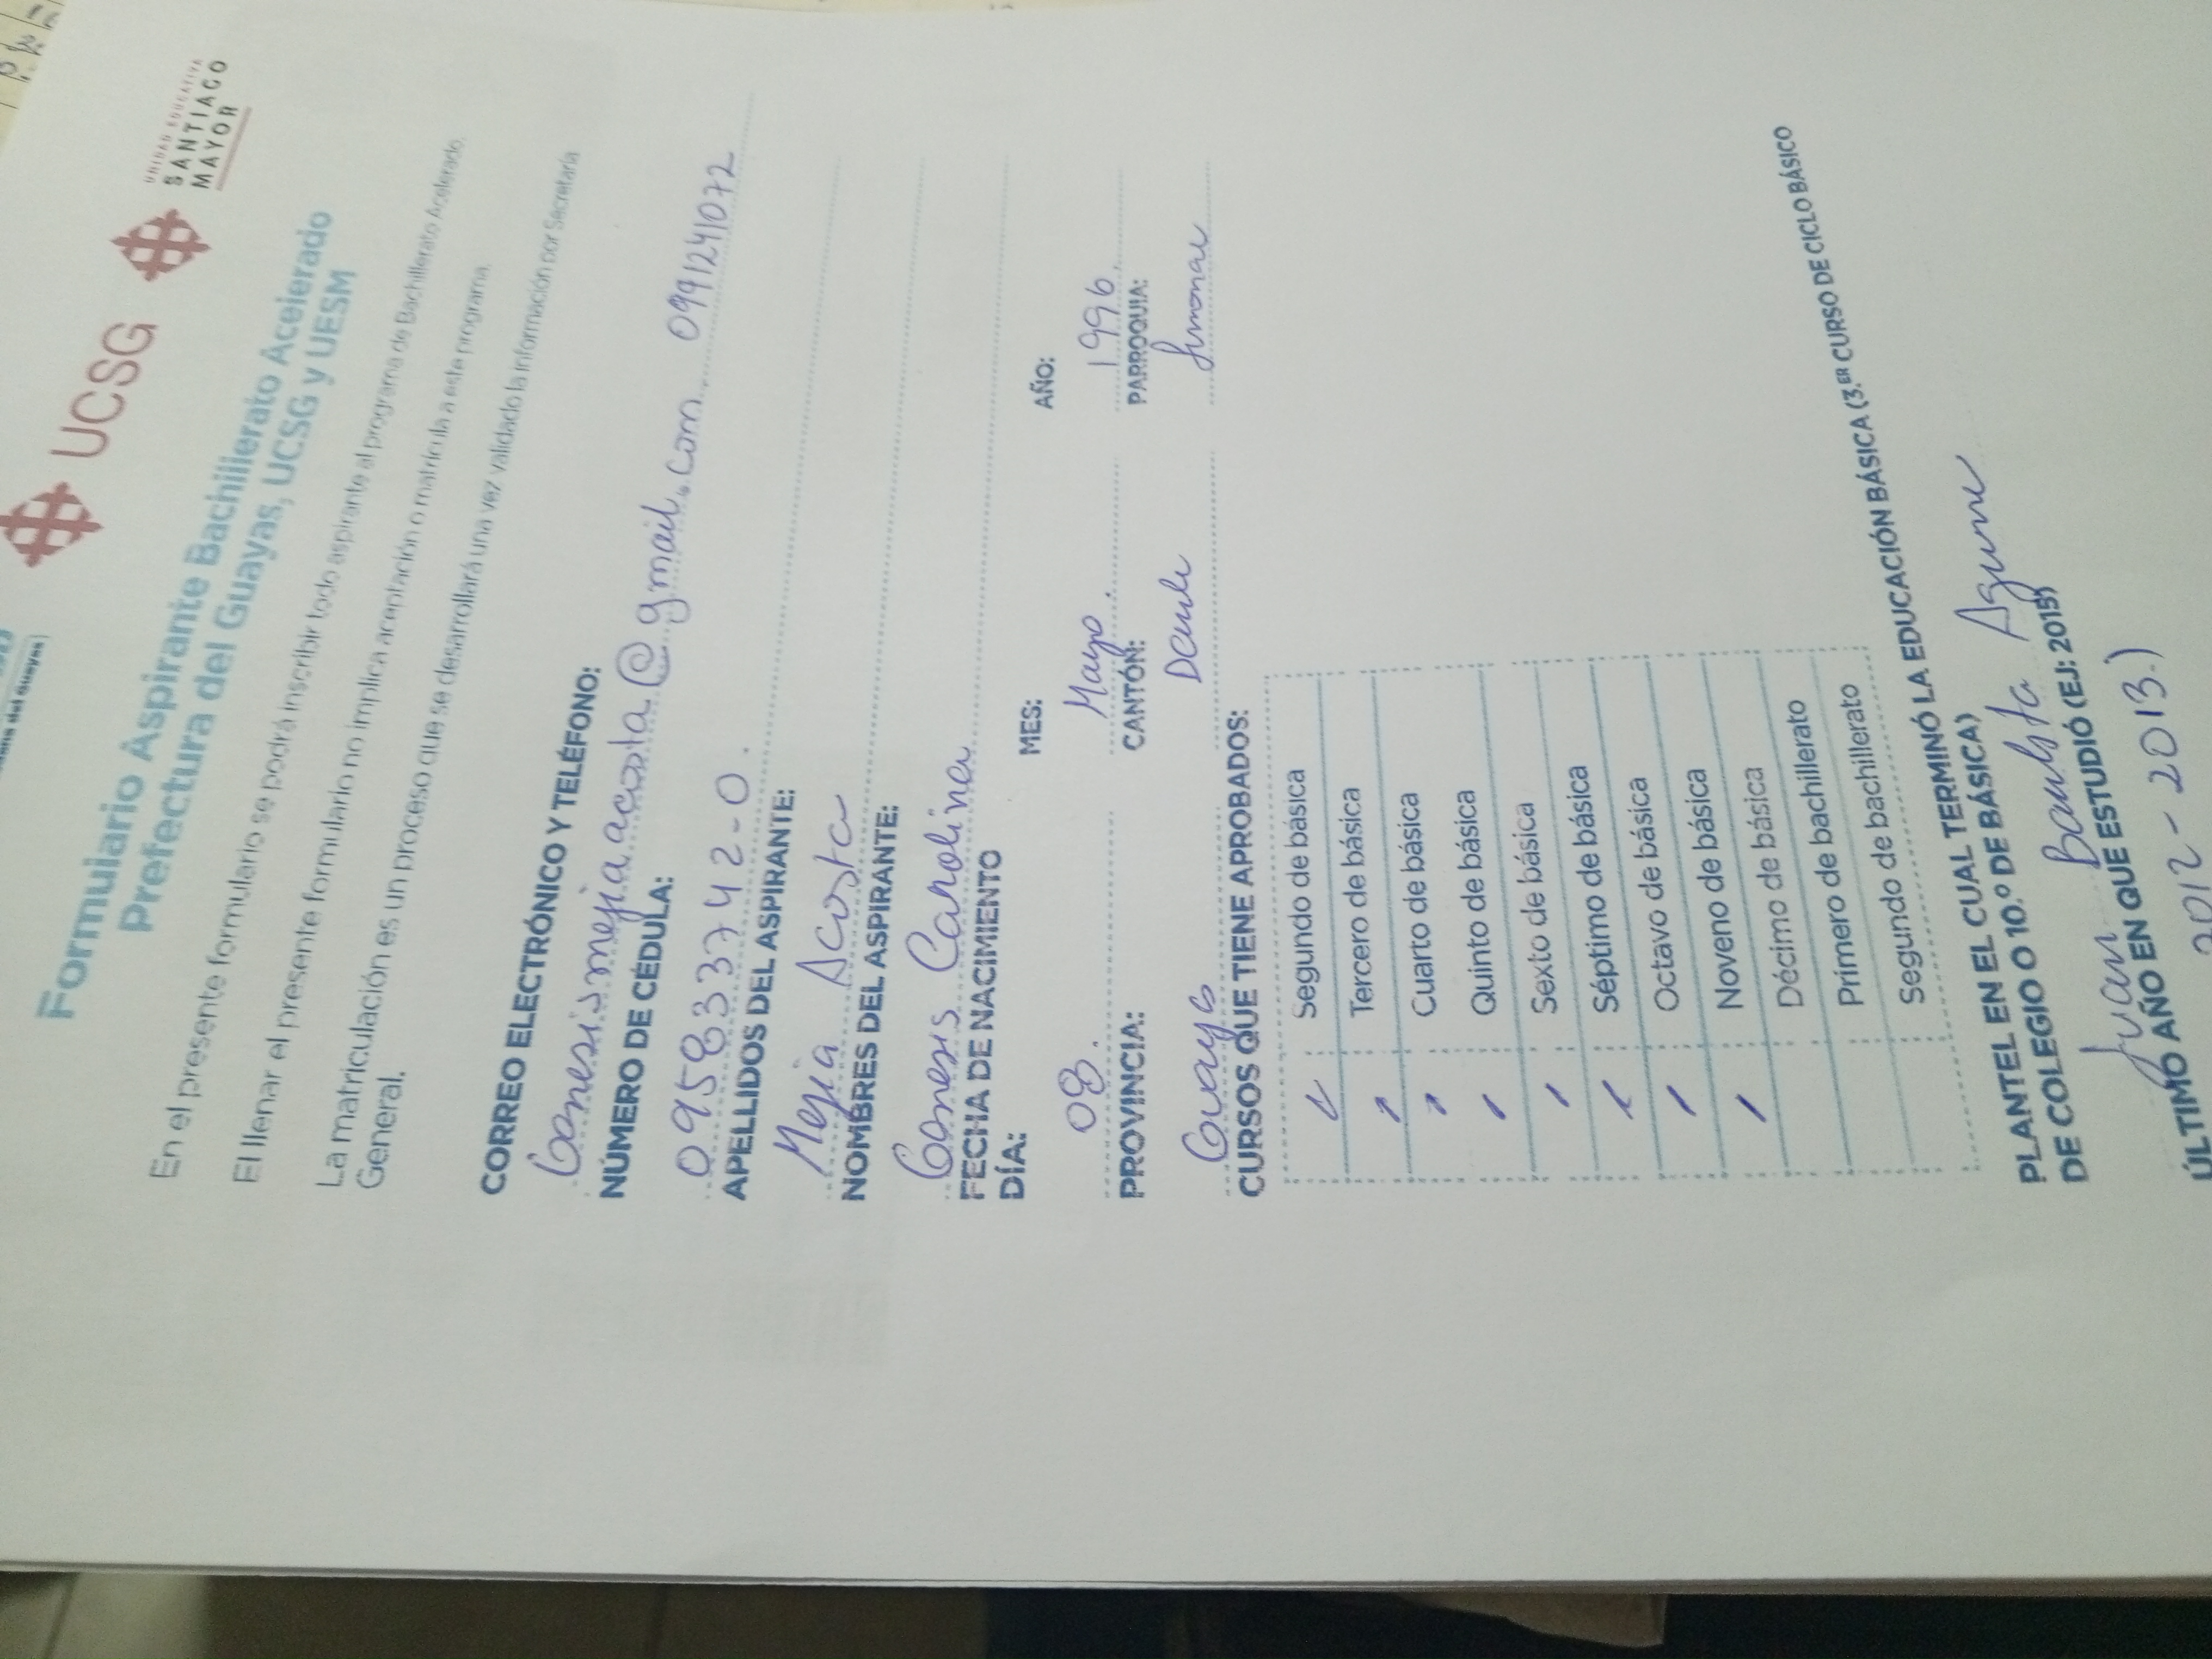 UCSG
UNIDAD EDUCATIVA
SANTIAGO
MAYOR
Formulario Aspirante Bachillerato Acelerado
Prefectura del Guayas, UCSG y UESM
En el presente formulario se podrá inscribir todo aspirante al programa de Bachillerato Acelerado.
El llenar el presente formulario no implica aceptación o matrícula a este programa.
La matriculación es un proceso que se desarrollará una vez validado la información por Secretaría
General.
CORREO ELECTRÓNICO Y TELÉFONO:
Genesismejiaacosta@gmail.com 0991241072
NÚMERO DE CÉDULA:
095833742-0.
APELLIDOS DEL ASPIRANTE:
Mejia Acosta
NOMBRES DEL ASPIRANTE:
Genesis Carolina
FECHA DE NACIMIENTO
DÍA: MES: AÑO:
08. Mayo. 1996.
PROVINCIA: CANTÓN: PARROQUIA:
Guayas Daule
CURSOS QUE TIENE APROBADOS:
Segundo de básica
Tercero de básica
Cuarto de básica
Quinto de básica
Sexto de básica
Séptimo de básica
Octavo de básica
Noveno de básica
Décimo de básica
Primero de bachillerato
Segundo de bachillerato
PLANTEL EN EL CUAL TERMINÓ LA EDUCACIÓN BÁSICA (3.ER CURSO DE CICLO BÁSICO
DE COLEGIO O 10.º DE BÁSICA)
Juan Bautista Aguirre
ÚLTIMO AÑO EN QUE ESTUDIÓ (EJ: 2015)
2012 - 2013.)